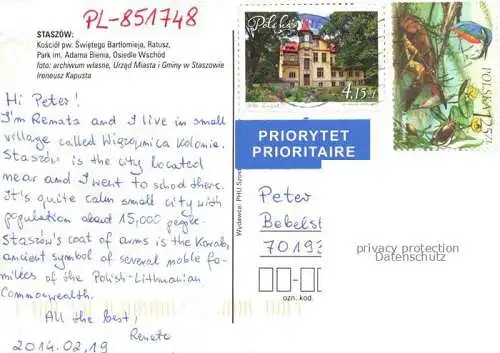 PL-851748
STASZÓW:
Kościół pw. Świętego Bartłomieja, Ratusz,
Park im. Adama Bienia, Osiedle Wschód
foto: archiwum własne, Urząd Miasta i Gminy w Staszowie
Ireneusz Kapusta
Hi Peter!
I'm Renata and I live in small
village called Wiązownica Kolonia.
Staszów is the city located
near and I went to school there.
It's quite calm small city with
population about 15,000 people.
Staszów's coat of arms is the Korab,
ancient symbol of several noble fa-
milies of the Polish-Lithuanian
Commonwealth.
All the best,
Renata
2014.02.19
Polska
4,15 zł
POLSKA
PRIORYTET
PRIORITAIRE
Wydawca: PHU
Peter
Bebelst
70193
privacy protection
Datenschutz
ozn. kod.